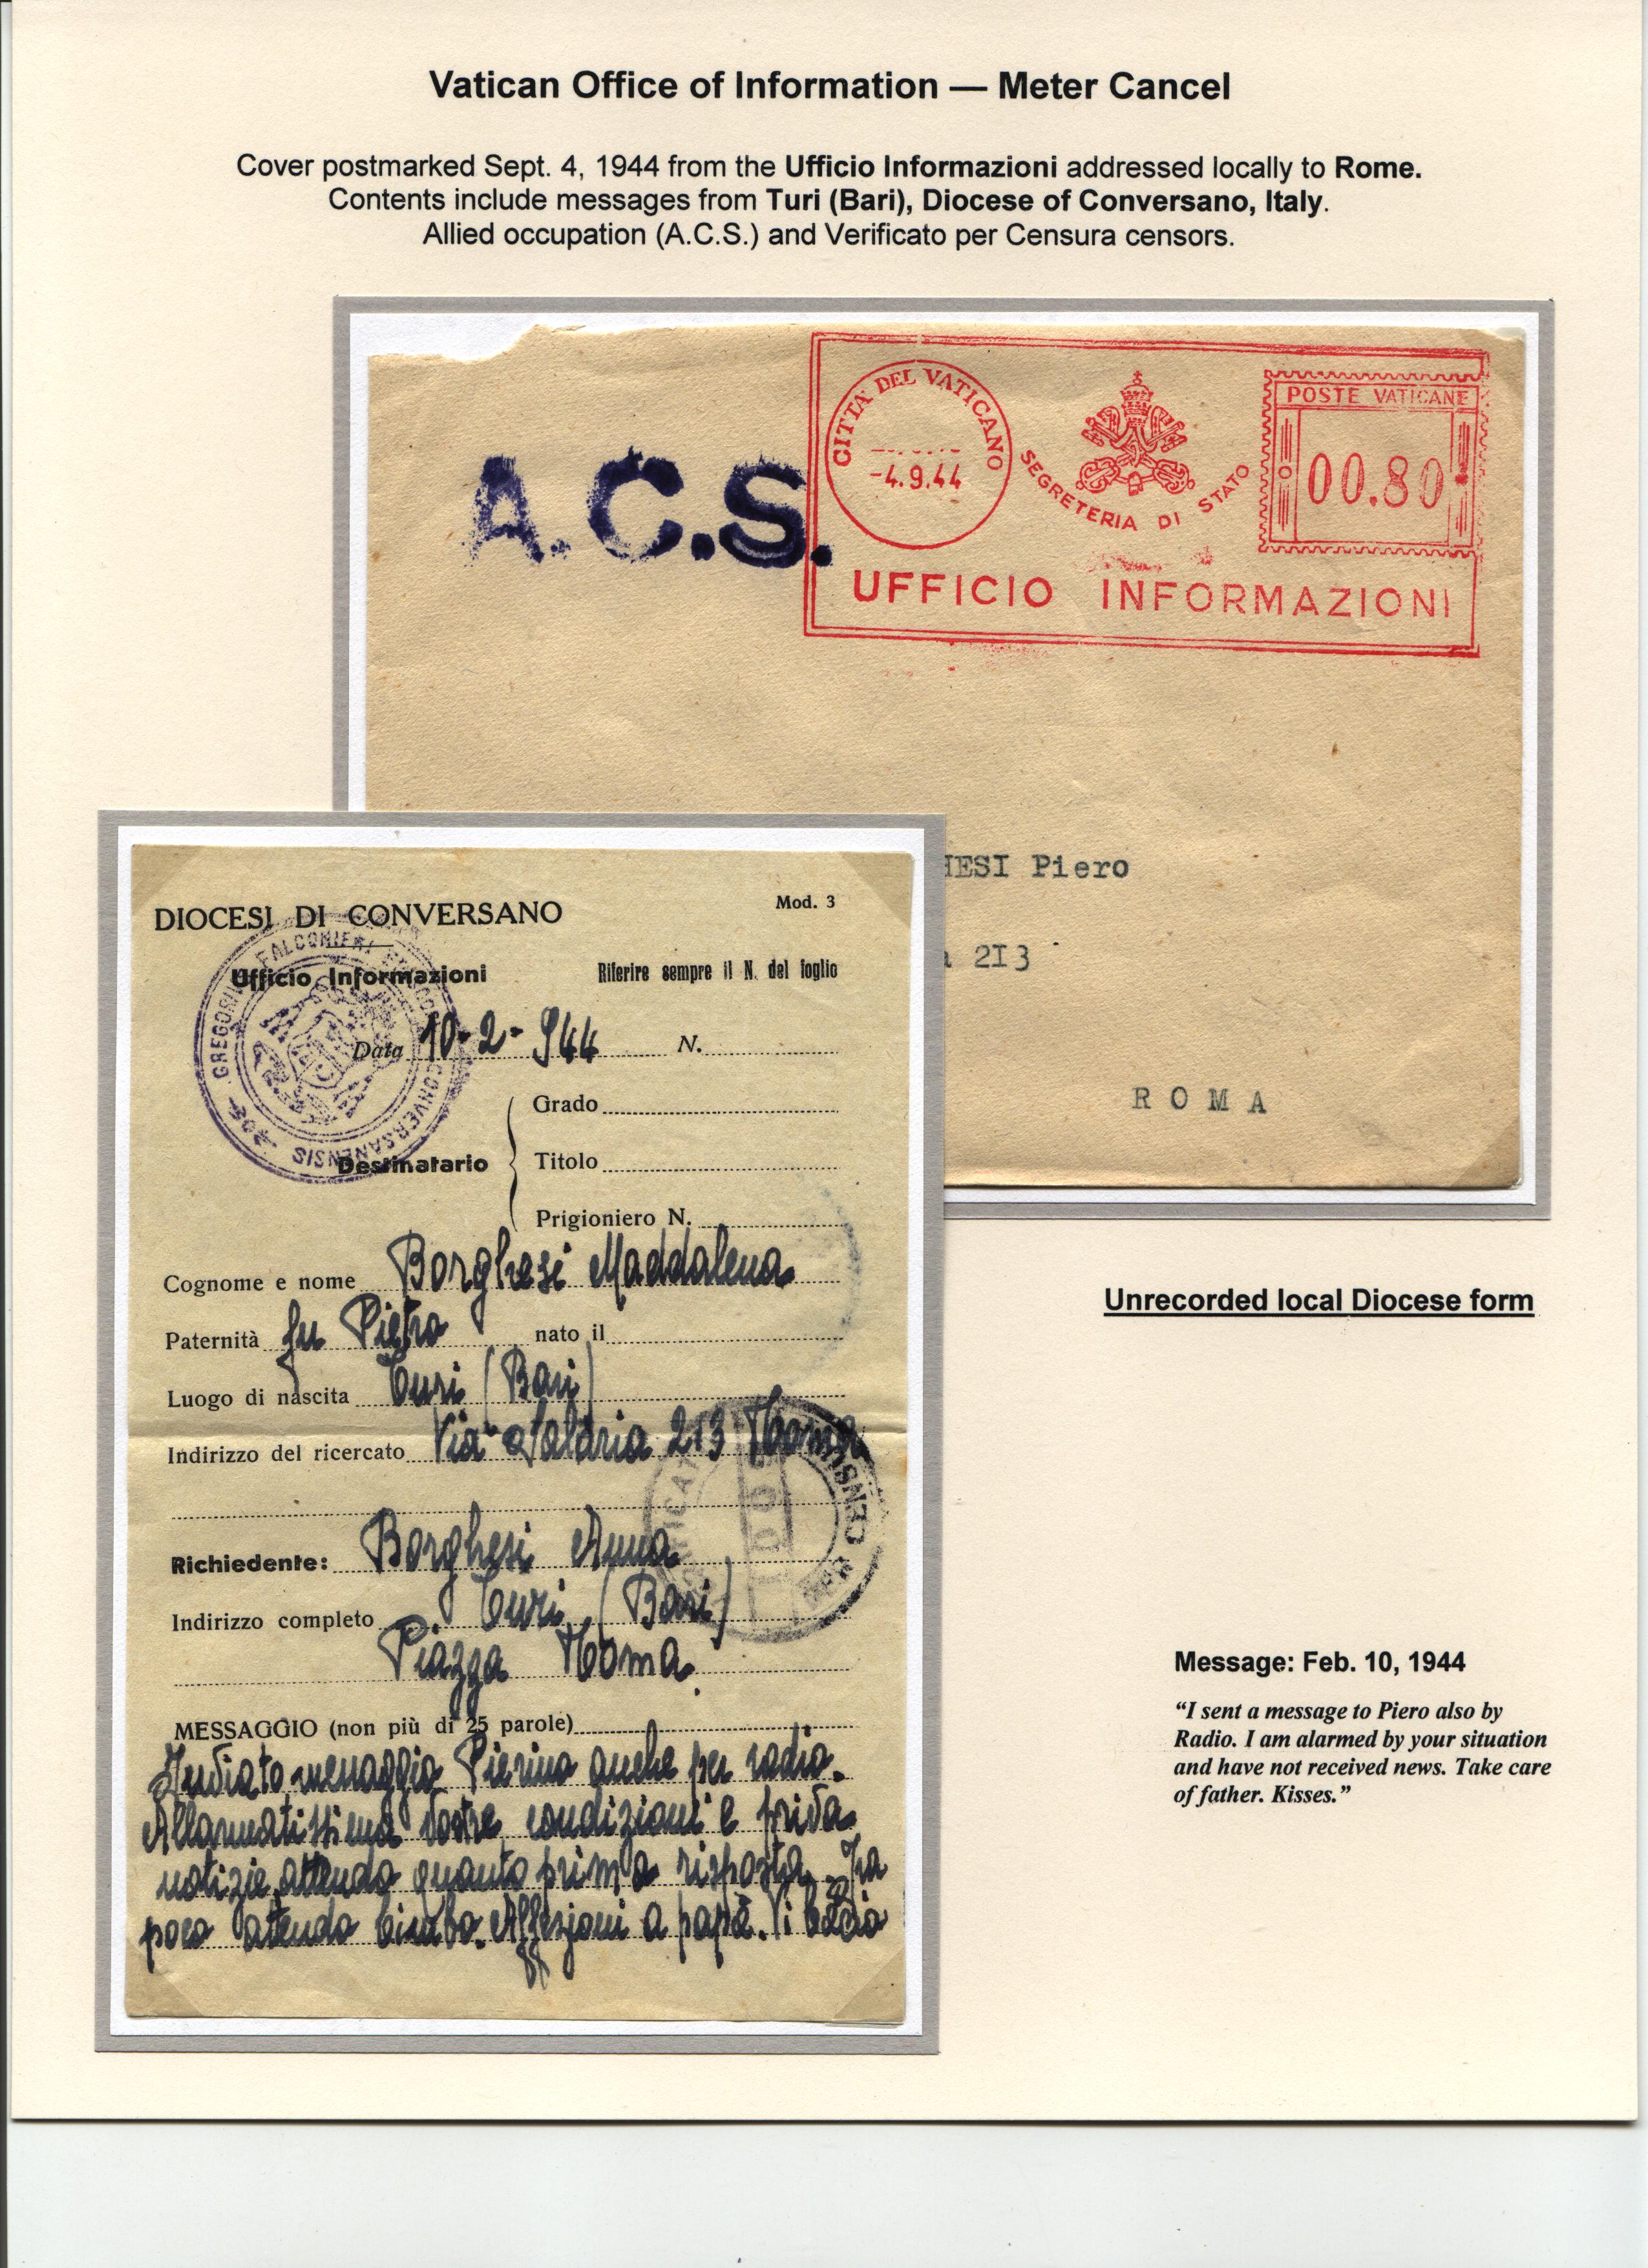 Vatican Office of Information — Meter Cancel
Cover postmarked Sept. 4, 1944 from the Ufficio Informazioni addressed locally to Rome.
Contents include messages from Turi (Bari), Diocese of Conversano, Italy.
Allied occupation (A.C.S.) and Verificato per Censura censors.
A.C.S.
CITTA' DEL VATICANO
-4.9.44
SEGRETERIA DI STATO
POSTE VATICANE
00.80
UFFICIO INFORMAZIONI
HESI Piero
a 2I3
ROMA
DIOCESI DI CONVERSANO
Mod. 3
Ufficio Informazioni
Riferire sempre il N. del foglio
GREGORIUS FALCONIERI CONVERSANENSIS
Data 10-2-944 N.
Destinatario
Grado
Titolo
Prigioniero N.
Cognome e nome Borghesi Maddalena
Paternità fu Pietro nato il
Luogo di nascita Turi (Bari)
Indirizzo del ricercato Via Salaria 213 Roma
CENSURA
Richiedente: Borghesi Anna
Indirizzo completo Turi (Bari)
Piazza Roma
MESSAGGIO (non più di 25 parole)
Inviato messaggio Pierino anche per radio.
Allarmatissima vostre condizioni e priva
notizie attendo quanto prima risposta. Fra
poco attendo bimbo. Affezioni a papà. Vi bacio
Unrecorded local Diocese form
Message: Feb. 10, 1944
“I sent a message to Piero also by
Radio. I am alarmed by your situation
and have not received news. Take care
of father. Kisses.”